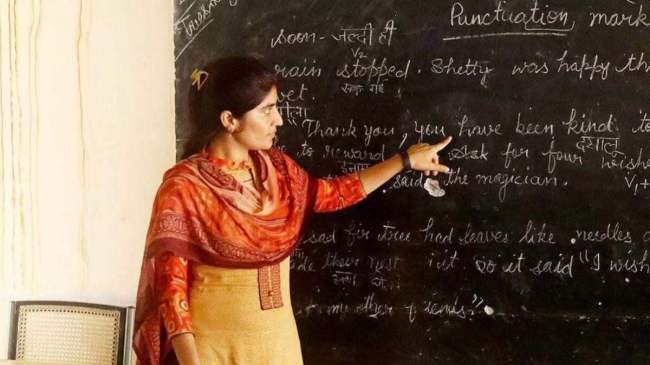 Punctuation, mark
soon - जल्दी ही
V2
rain stopped. Shetty was happy th
रुक गई
wet.
गीला
"Thank you, you have been kind to
दयालु
e to reward ask for four wishes
इनाम
V1+
said the magician.
sad fir tree had leaves like needles
it. So it said "I wish
my other friends".